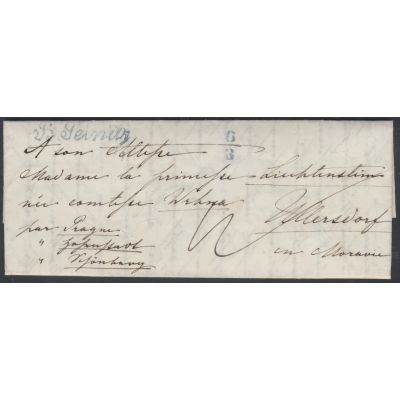 B. Teinitz
6/3
A son Altesse
Madame la princesse Liechtenstein
née comtesse Wrbna
Ullersdorf
par Prague
" Hohenstadt
" Schönberg
en Moravie